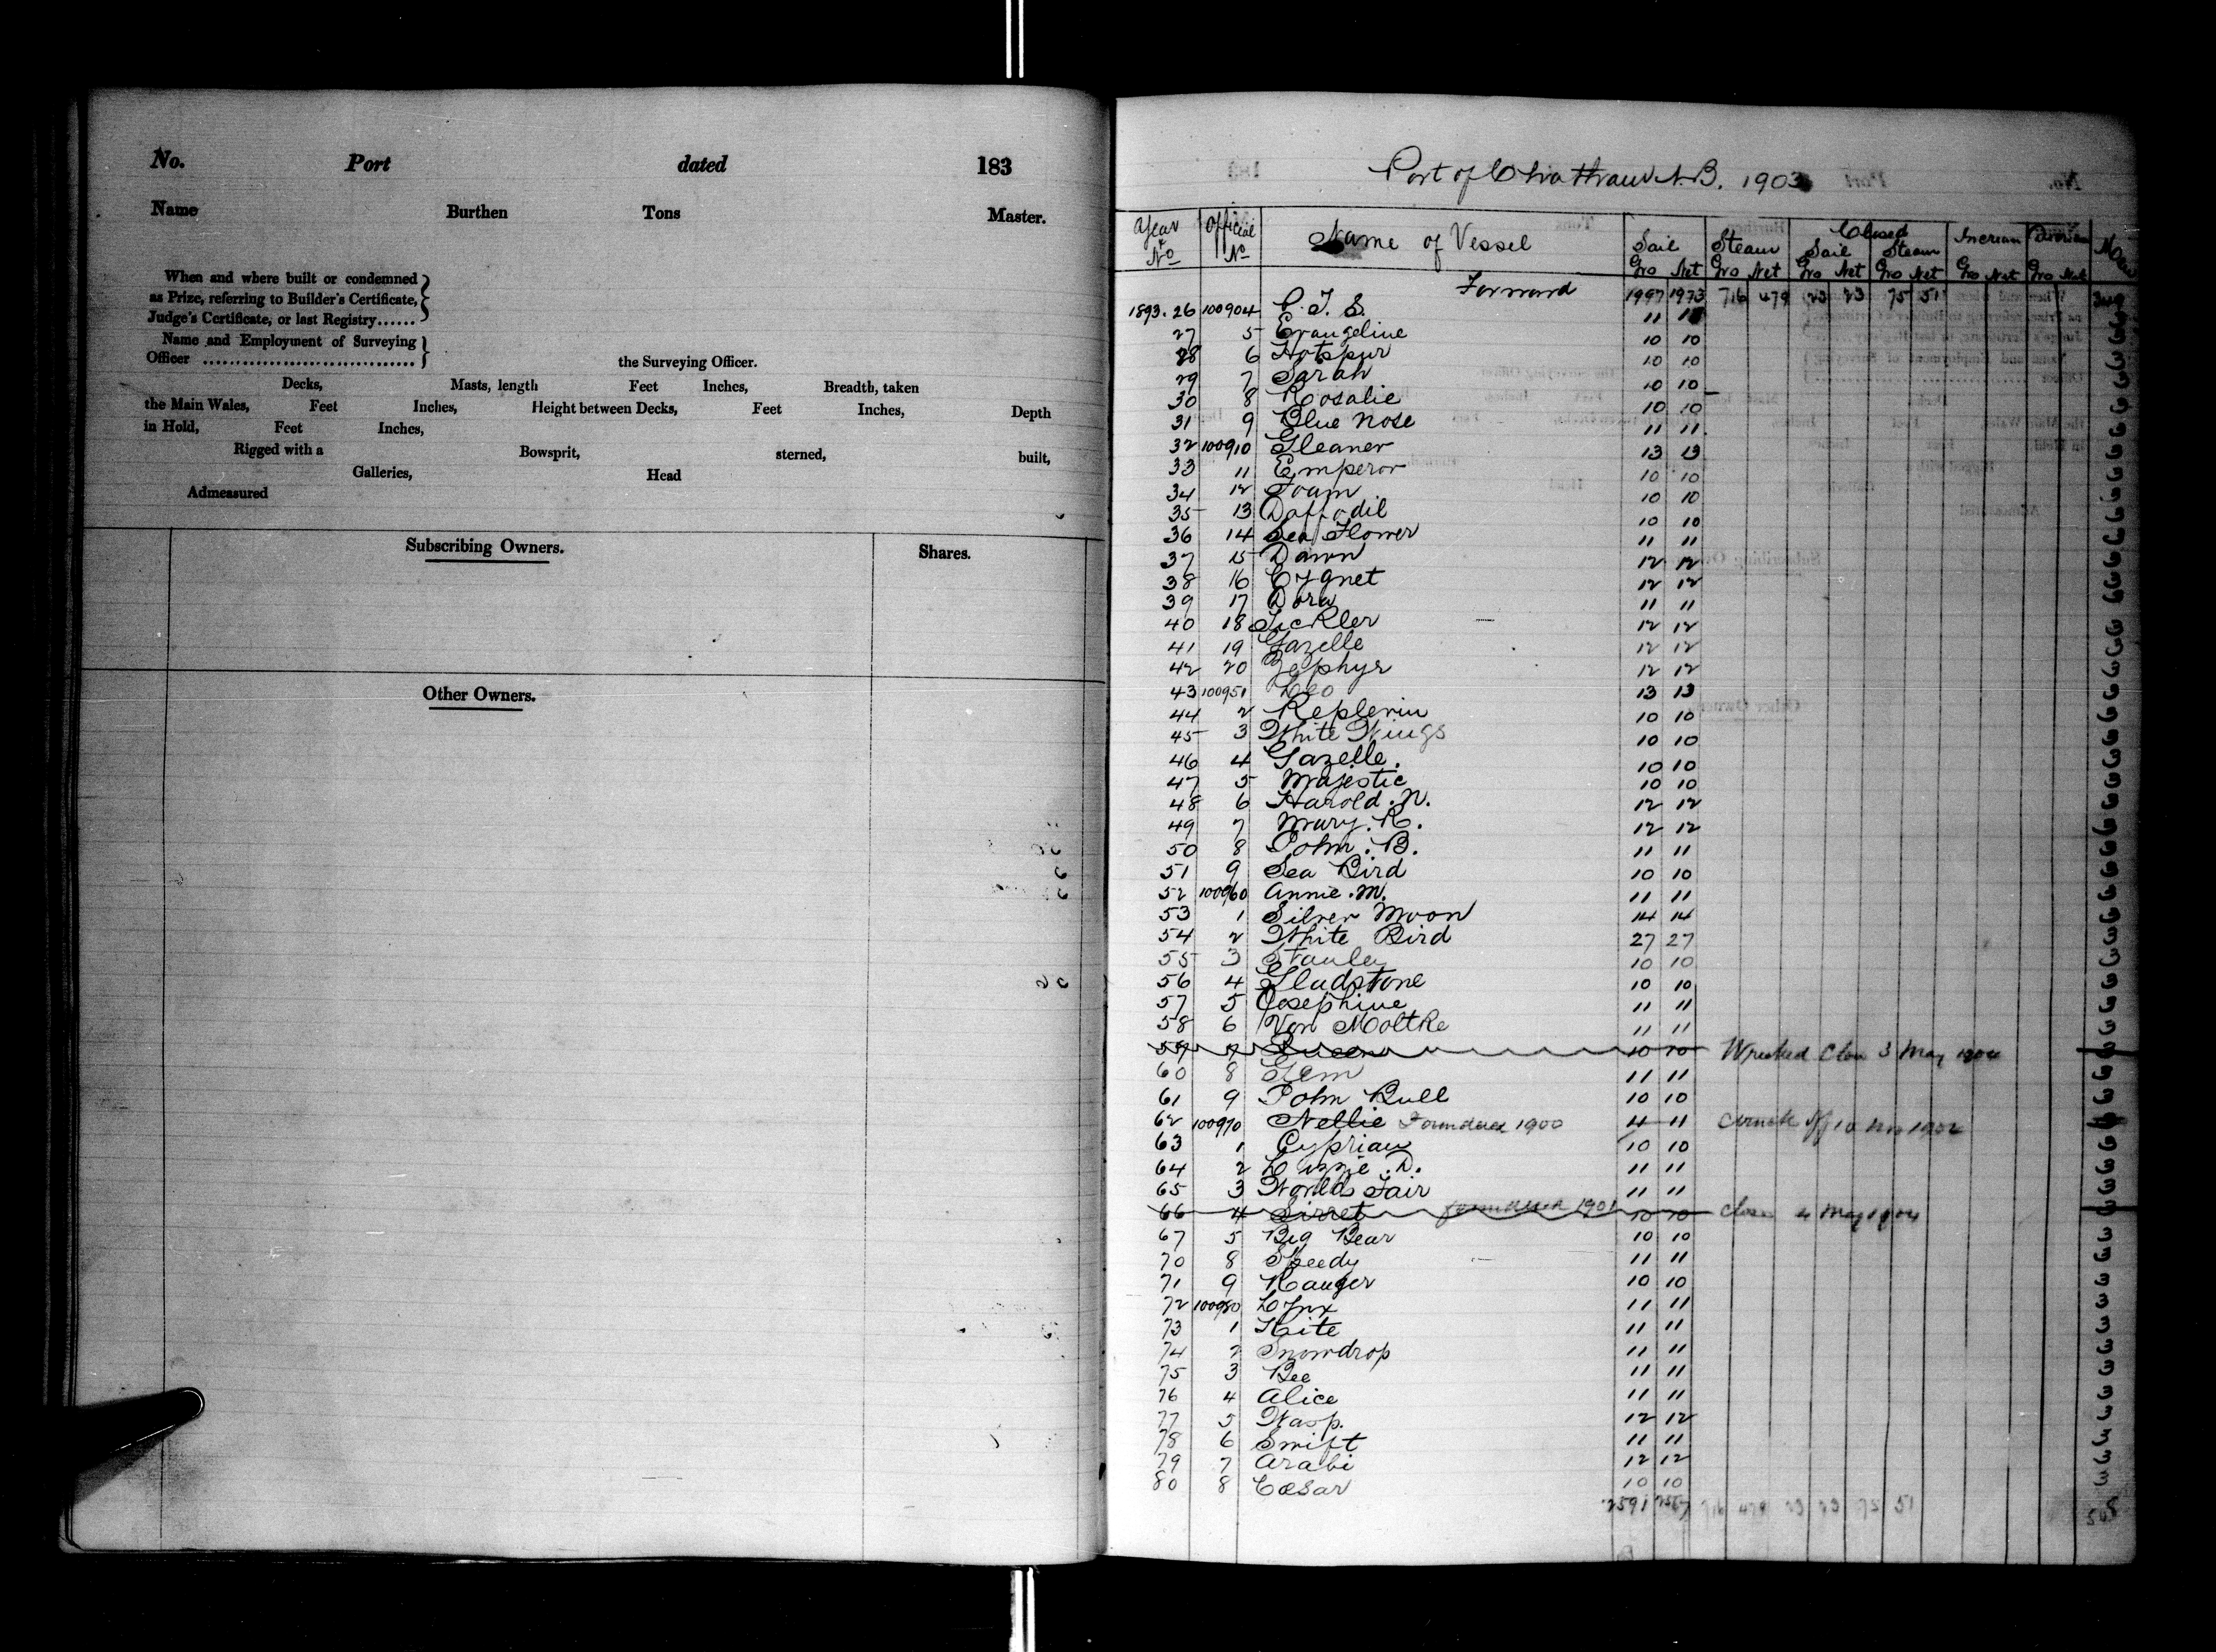 No. Port dated 183
Name Burthen Tons Master.
When and where built or condemned
as Prize, referring to Builder's Certificate,
Judge's Certificate, or last Registry......
Name and Employment of Surveying
Officer ................................ the Surveying Officer.
Decks, Masts, length Feet Inches, Breadth, taken
the Main Wales, Feet Inches, Height between Decks, Feet Inches, Depth
in Hold, Feet Inches,
Rigged with a Bowsprit, sterned, built,
Galleries, Head
Admeasured
Subscribing Owners. Shares.
Other Owners.
Port of Chatham N.B. 1903
Year & No Official No Name of Vessel Sail Steam Closed Sail Steam
Gro Net Gro Net Gro Net Gro Net Gro Net Gro Net
Forward 1997 1973 716 479 23 23 75 51
1893. 26 100904 C. T. S. 11 11 3
27 5 Evangeline 10 10 3
28 6 Hotspur 10 10 3
29 7 Sarah 10 10 3
30 8 Rosalie 10 10 3
31 9 Blue Nose 11 11 3
32 100910 Gleaner 13 13 3
33 11 Emperor 10 10 3
34 12 Foam 10 10 3
35 13 Daffodil 10 10 3
36 14 Sea Flower 11 11 3
37 15 Dawn 12 12 3
38 16 Cygnet 12 12 3
39 17 Dora 11 11 3
40 18 Tickler 12 12 3
41 19 Gazelle 12 12 3
42 20 Zephyr 12 12 3
43 100951 Leo 13 13 3
44 2 Replevin 10 10 3
45 3 White Wings 10 10 3
46 4 Gazelle. 10 10 3
47 5 Majestic 10 10 3
48 6 Harold. N. 12 12 3
49 7 Mary. R. 12 12 3
50 8 John. B. 11 11 3
51 9 Sea Bird 10 10 3
52 100960 Annie. M. 11 11 3
53 1 Silver Moon 14 14 3
54 2 White Bird 27 27 3
55 3 Stanley 10 10 3
56 4 Gladstone 10 10 3
57 5 Josephine 11 11 3
58 6 Von Moltke 11 11 3
59 7 Queen 10 10 Wrecked Clos 3 May 1904
60 8 Gem 11 11 3
61 9 John Bull 10 10 3
62 100970 Nellie Foundered 1900 11 struck off 10
63 1 Cyprian 10 10 3
64 2 Lizzie. D. 11 11 3
65 3 Worlds Fair 11 11 3
66 4 Sirret foundered 1901 10 10 Clos 4 May 1904
67 5 Big Bear 10 10 3
70 8 Speedy 11 11 3
71 9 Ranger 10 10 3
72 100980 Lynx 11 11 3
73 1 Kite 11 11 3
74 2 Snowdrop 11 11 3
75 3 Bee 11 11 3
76 4 Alice 11 11 3
77 5 Wasp. 12 12 3
78 6 Swift 11 11 3
79 7 Arabi 12 12 3
80 8 Cæsar 10 10 3
2591 2567 716 479 23 23 75 51